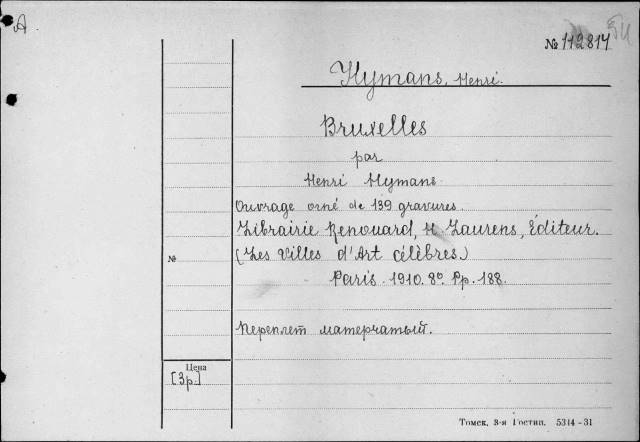 A
№ 112814
Hymans, Henri.
Bruxelles
par
Henri Hymans
Ouvrage orné de 139 gravures.
Librairie Renouard, H. Laurens, Éditeur.
№ (Les Villes d'Art célèbres.)
Paris. 1910. 8º. Pp. 188.
Переплет матерчатый.
Цена
[3р.]
Томск, 3-я Гостип. 5314-31